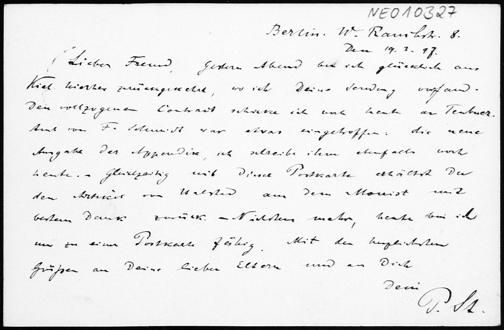 NEO10327
Berlin. W. Rankestr. 8.
Den 19.3.97.
Lieber Freund, gestern Abend bin ich glücklich aus
Kiel hierher zurückgekehrt, wo ich Deine Sendung vorfand.
Den vollzogenen Contract schicke ich noch heute an Teubner.
Auch von F. Schmidt war etwas eingetroffen: die neue
Ausgabe der Appendix, ich schreibe ihm ebenfalls noch
heute. – Gleichzeitig mit dieser Postkarte erhältst Du
den Artikel von Halsted aus dem Monist mit
bestem Dank zurück. – Nächstens mehr, heute bin ich
nur zu einer Postkarte fähig. Mit den herzlichsten
Grüßen an Deine lieben Eltern und an Dich
Dein
P. St.